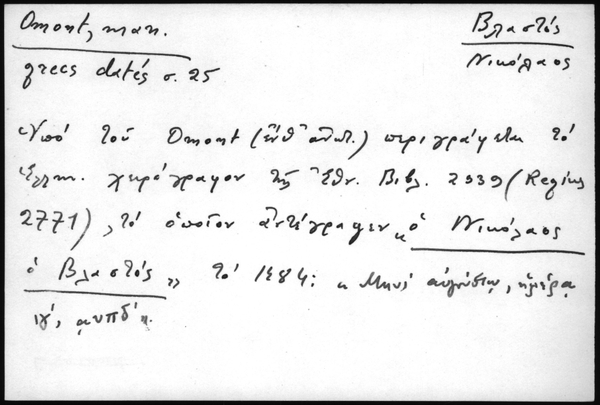 Omont, man.
Βλαστός
grecs datés σ. 25
Νικόλαος
Ὑπό τοῦ Omont (ἔνθ' ἀνωτ.) περιγράφεται τό
ἑλλην. χειρόγραφον τῆς Ἐθν. Βιβλ. 2939 (Regius
2771), τό ὁποῖον ἀντέγραψεν « ὁ Νικόλαος
ὁ Βλαστός » τό 1484: « Μηνί αὐγούστῳ, ἡμέρᾳ
ιγ', ͵αυπδ' ».